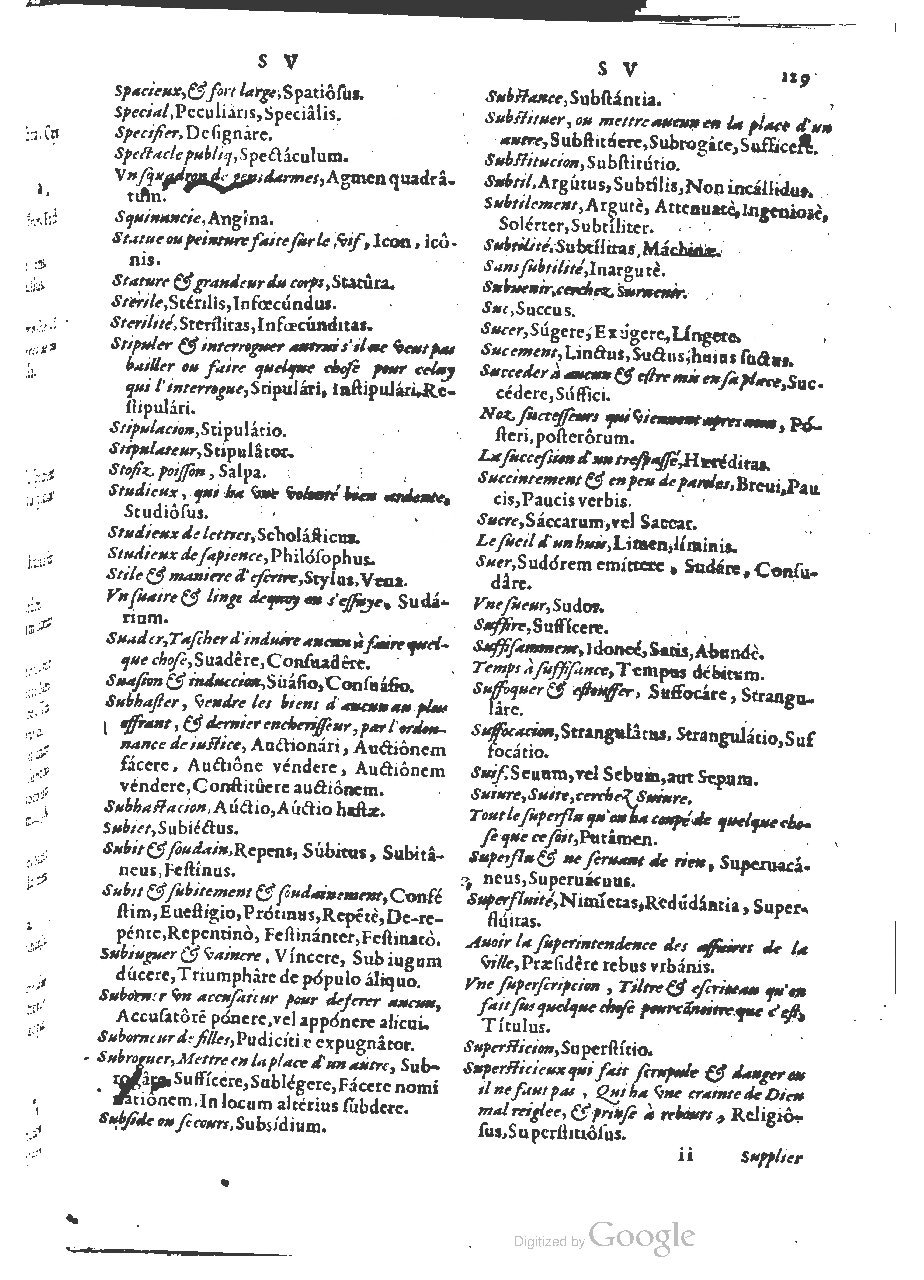 S V
Spacieux,& fort large,Spatiôſus.
Special,Peculiáris,Speciâlis.
Specifier,Deſignáre.
Spectacle publiq,Spectáculum.
Vn ſquadron de gendarmes,Agmen quadrâ-
tum.
Squinancie,Angína.
Statue ou peinture faite ſur le vif,Icon,icô-
nis.
Stature & grandeur du corps,Statûra.
Sterile,Stérilis,Infœcúndus.
Sterilité,Sterílitas,Infœcúnditas.
Stipuler & interroguer autrui s'il ne veut pas
bailler ou faire quelque choſe pour celuy
qui l'interrogue,Stipulári, Inſtipulári,Re-
ſtipulári.
Stipulacion,Stipulátio.
Stipulateur,Stipulâtor.
Stofiz poiſſon, Salpa.
Studieux, qui ha vne volonté bien ardente,
Studiôſus.
Studieux de lettres,Scholáſticus.
Studieux de ſapience,Philóſophus.
Stile & maniere d'eſcrire,Stylus,Vena.
Vn ſuaire & linge dequoy on s'eſſuye, Sudá-
rium.
Suader,Taſcher d'induire aucun à faire quel-
que choſe,Suadêre,Conſuadêre.
Suaſion & induccion,Suáſio,Conſuáſio.
Subhaſter, vendre les biens d'aucun au plus
offrant, & dernier encheriſſeur, par l'ordon-
nance de iuſtice, Auctionári, Auctiônem
fácere, Auctiône véndere, Auctiônem
véndere,Conſtitúere auctiônem.
Subhaſtacion,Aúctio,Aúctio haſtæ.
Subiet,Subiéctus.
Subit & ſoudain,Repens, Súbitus, Subitâ-
neus,Feſtínus.
Subit & ſubitement & ſoudainement,Confé
ſtim, Eueſtígio,Prótinus,Repétè,De-re-
pénte,Repentinò, Feſtinánter,Feſtinatò.
Subiuguer & vaincre, Víncere, Sub iugum
dúcere,Triumphâre de pópulo áliquo.
Suborner vn accuſateur pour deferer aucun,
Accuſatôrē pónere,vel appónere alicui.
Suborneur de filles,Pudicítiæ expugnâtor.
Subroguer,Mettre en la place d'un autre, Sub-
rogâre,Sufficere,Sublégere,Fácere nomi
nationem,In locum altérius ſubdere.
Subſide ou ſecours,Subsídium.
S V 129
Subſtance,Subſtántia.
Subſtituer, ou mettre aucun en la place d'un
autre,Subſtitúere,Subrogâre,Sufficere.
Subſtitucion,Subſtitútio.
Subtil,Argútus,Subtílis,Non incállidus.
Subtilement,Argutè, Attenuatè,Ingeniosè,
Solérter,Subtíliter.
Subtilité,Subtílitas,Máchinæ.
Sans ſubtilité,Inargutè.
Subuenir,cerchez Suruenir.
Suc,Succus.
Sucer,Súgere,Exúgere,Língere.
Sucement,Linctus,Suctus,huius ſuctus.
Succeder à aucun & eſtre mis en ſa place,Suc-
cédere,Súffici.
Noz ſucceſſeurs qui viennent apres nous, Pó-
ſteri,poſterôrum.
La ſucceſsion d'un treſpaſſé,Heréditas.
Succintement & en peu de paroles,Breui,Pau
cis,Paucis verbis.
Sucre,Sáccarum,vel Saccar.
Le ſueil d'un huis,Limen,líminis.
Suer,Sudórem emíttere, Sudáre, Conſu-
dâre.
Vne ſueur,Sudor.
Suffire,Sufficere.
Suffiſamment,Idoneè,Satis,Abundè.
Temps à ſuffiſance,Tempus débitum.
Suffoquer & eſtouffer, Suffocáre, Strangu-
lâre.
Suffocacion,Strangulâtus, Strangulátio,Suf
focátio.
Suif,Seuum,vel Sebum,aut Sepum.
Suture,Suite,cerchez Suiure.
Tout le ſuperflu qu'on ha coupé de quelque cho-
ſe que ce ſoit,Putâmen.
Superflu & ne ſeruant de rien, Superuacá-
neus,Superuácuus.
Superfluité,Nimíetas,Redúdántia, Super-
flúitas.
Avoir la ſuperintendence des affaires de la
ville,Præſidêre rebus vrbánis.
Vne ſuperſcripcion, Tiltre & eſcriteau qu'on
fait ſus quelque choſe pour cãnoitre que c'eſt,
Títulus.
Superſticion,Superſtítio.
Superſticieux qui fait ſcrupule & danger ou
il ne faut pas, Qui ha vne crainte de Dieu
mal reiglee, & prinſe à rebours, Religiô-
ſus,Superſtitiôſus.
ii Supplier
Digitized by Google